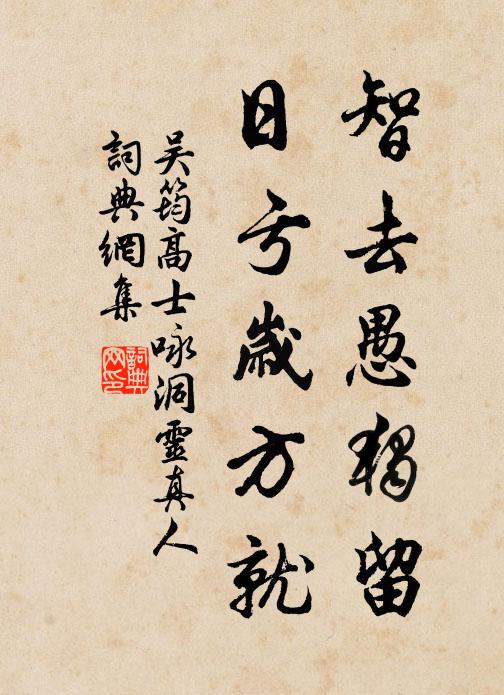 智去愚獨留
日亏歲方就
吴筠高士咏洞靈真人
詞典網集
詞典網印